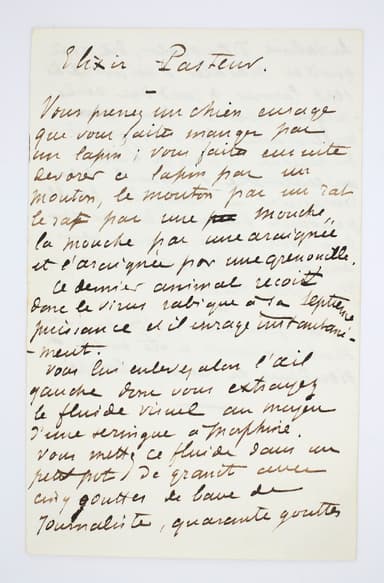 Elixir Pasteur.
Vous prenez un chien enragé
que vous faites manger par
un lapin; vous faites ensuite
devorer ce lapin par un
mouton, le mouton par un rat
le rat par une mouche,
la mouche par une araignée
et l'araignée par une grenouille.
Ce dernier animal reçoit
donc le virus rabique à sa septième
puissance et il enrage instantané-
-ment.
Vous lui enlevez alors l'œil
gauche dont vous extrayez
le fluide visuel au moyen
d'une seringue à morphine.
Vous mettez ce fluide dans un
petit pot de granit avec
cinq gouttes de bave de
journaliste, quarante gouttes